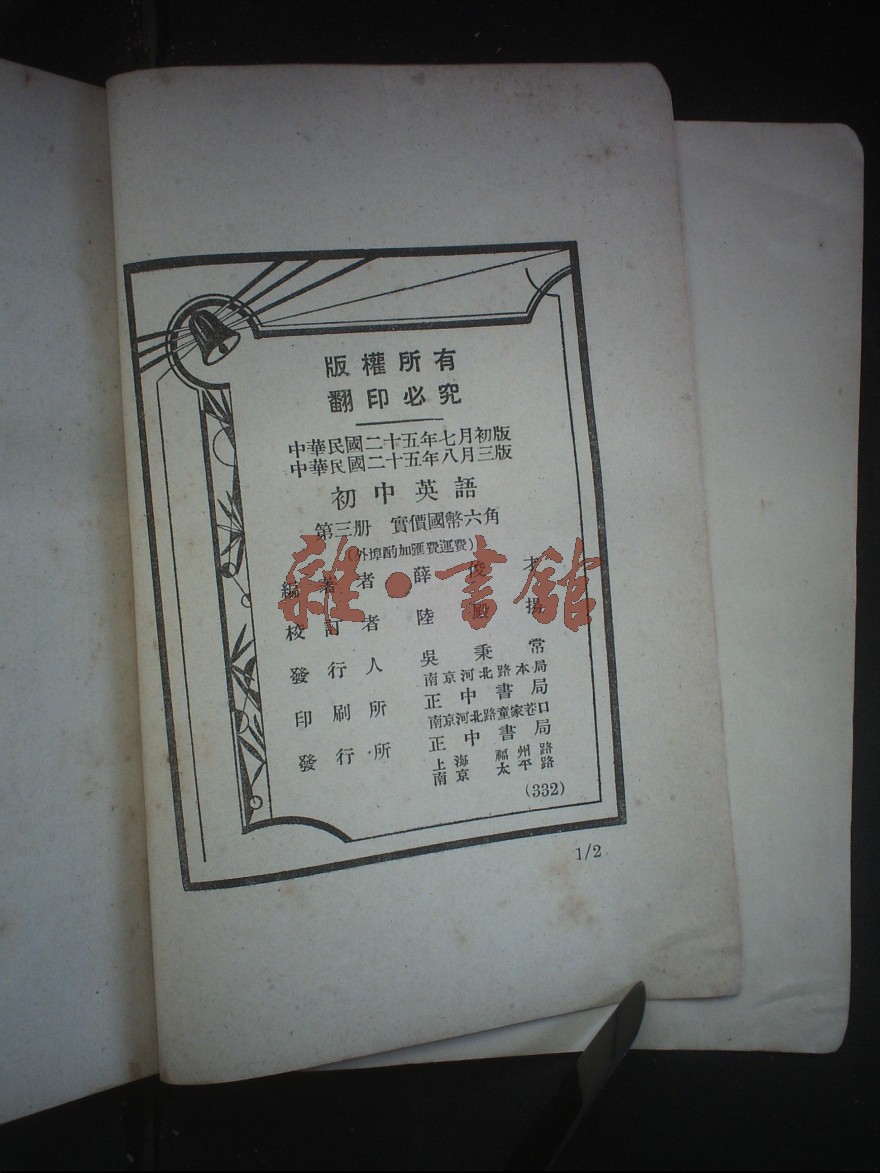 版權所有
翻印必究
中華民國二十五年七月初版
中華民國二十五年八月三版
初中英語
第三册 實價國幣六角
(外埠酌加匯費運費)
編著者 薛俊才
校訂者 陸殿揚
發行人 吳秉常
南京河北路本局
印刷所 正中書局
南京河北路童家巷口
發行所 正中書局
上海福州路
南京太平路
(332)
1/2
雜·書館